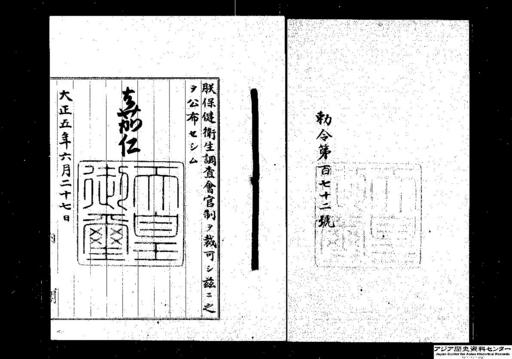 勅令第百七十二號
朕保健衞生調査會官制ヲ裁可シ茲ニ之
ヲ公布セシム
嘉仁
天皇
御璽
大正五年六月二十七日
アジア歴史資料センター
Japan Center for Asian Historical Records